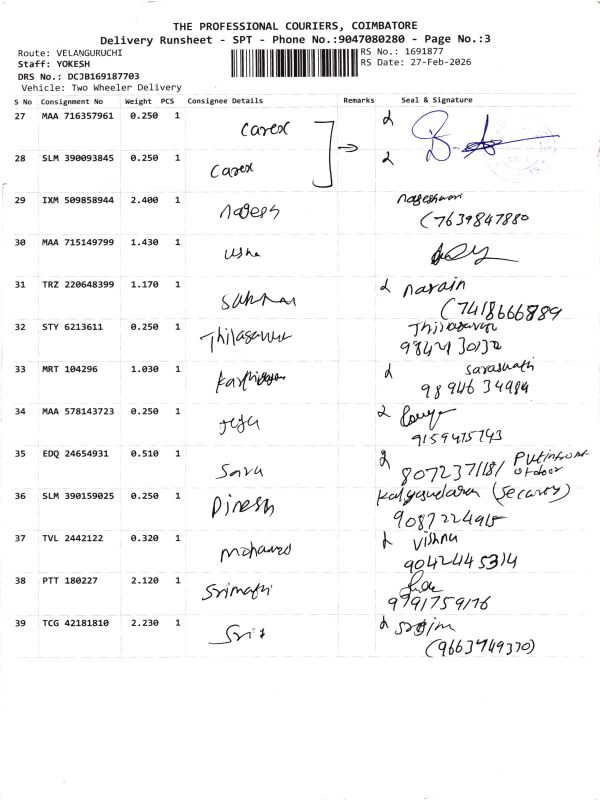 THE PROFESSIONAL COURIERS, COIMBATORE
Delivery Runsheet - SPT - Phone No.:9047080280 - Page No.:3
Route: VELANGURUCHI
RS No.: 1691877
Staff: YOKESH
RS Date: 27-Feb-2026
DRS No.: DCJB169187703
Vehicle: Two Wheeler Delivery
S No Consignment No Weight PCS Consignee Details Remarks Seal & Signature
27 MAA 716357961 0.250 1 Carex
28 SLM 390093845 0.250 1 Carex
29 IXM 509858944 2.400 1 Nagesh Nageshwari
(7639847880
30 MAA 715149799 1.430 1 Usha
31 TRZ 220648399 1.170 1 narain
(7418666889
32 STY 6213611 0.250 1
98424 30132
33 MRT 104296 1.030 1 Saraswathi
98946 34984
34 MAA 578143723 0.250 1
9159475743
35 EDQ 24654931 0.510 1 Saru
8072371181
36 SLM 390159025 0.250 1 Dinesh
9087224915
37 TVL 2442122 0.320 1 Mohamed Vishnu
9042445314
38 PTT 180227 2.120 1 Srimathi
9791759176
39 TCG 42181810 2.230 1
(9663749370)